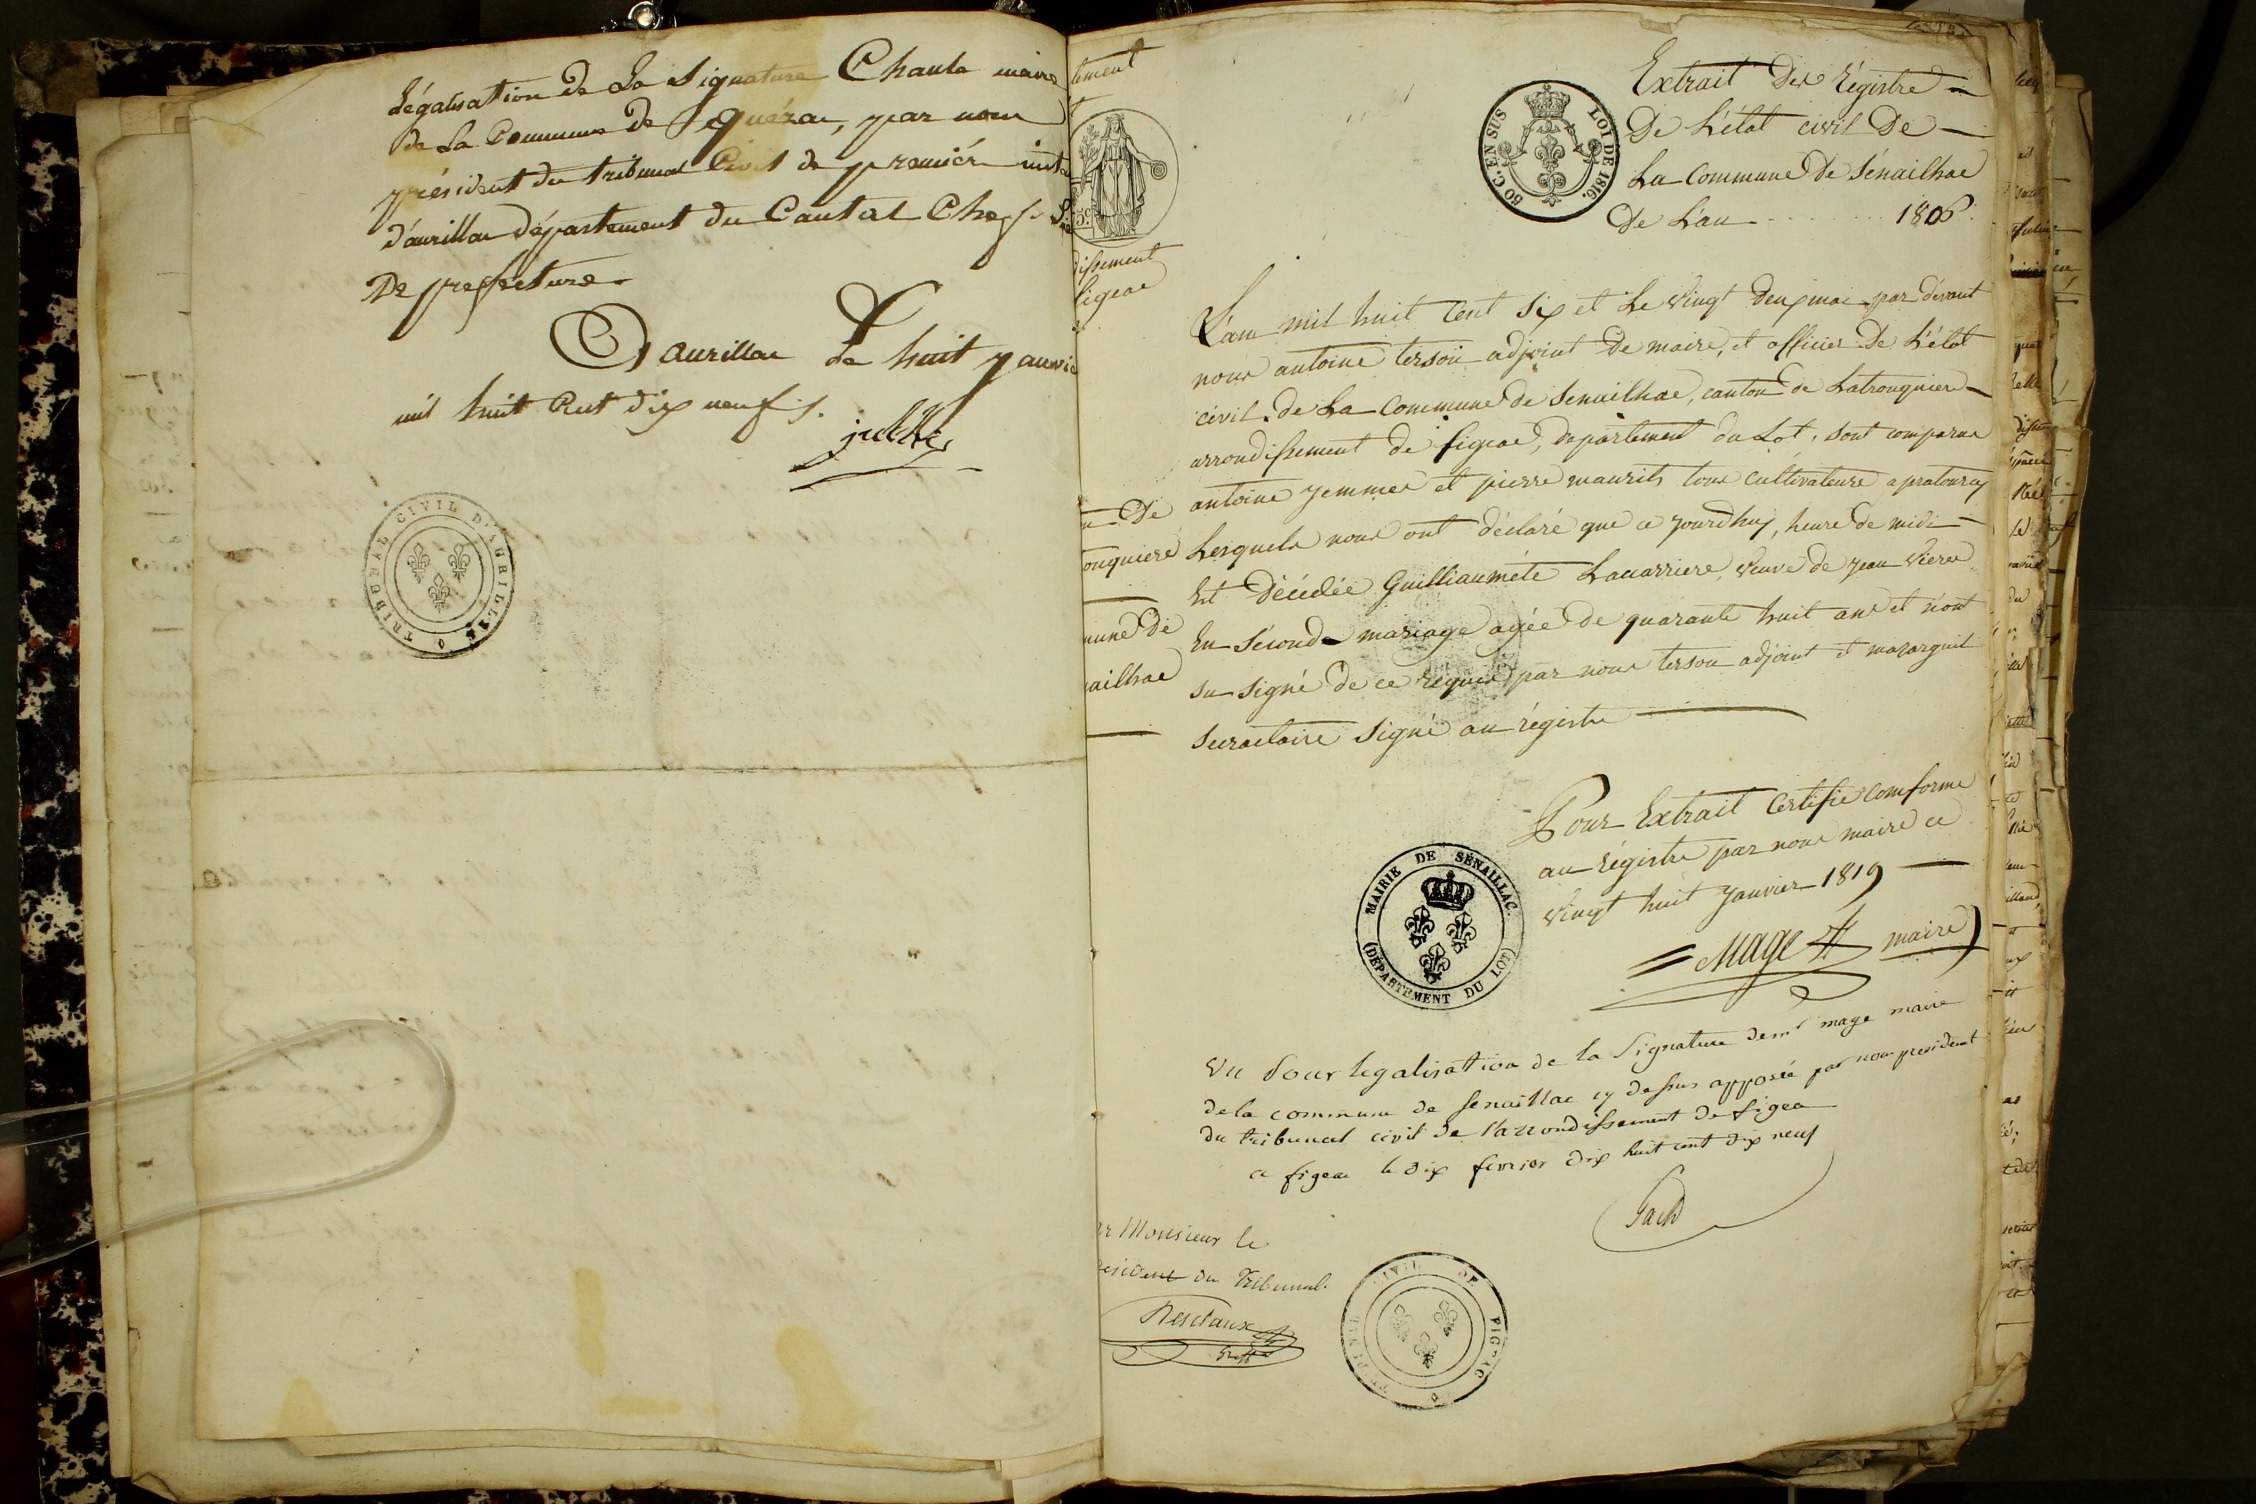 Légalisation de La Signature Chaula maire
de La Commune de Quézac, par nous
président du tribunal Civil de première insta
d'aurillac département du Cantal Chef
De prefecture
A aurillac Le huit janvie
mil huit Cent dix neuf
TRIBUNAL CIVIL D'AURILLAC
tement
dissement
figeac
n De
ouquiere
mune De
nailhac
50 C. EN SUS LOI DE 1816.
Extrait Des Régistre
De L'état civil De
La Commune De Sénailhac
De L'an 1806
L'an mil huit Cent Six et Le Vingt deux mai par dévant
nous antoine terson adjoint De maire, et officier De L'état
civil. de La Commune de Senailhac, canton de Latrouquiere
arrondissement de figeac, département du Lot, sont comparus
antoine yemmes et pierre maurits tous cultivateurs a pratoucy
Lesquels nous ont déclaré que ce jourdhuy, heure De midi
Est Décédée Guilliauméte Lacarriere, veuve de jean vieres
En Seconde mariage agée de quarante huit ans et n'ont
su signé de ce réquis par nous terson adjoint et mazarguil
secraitaire signé au régistre
Pour Extrait Certifié comforme
au régistre par nous maire ce
vingt huit Janvier 1819
Mage maire
MAIRIE DE SÉNAILLAC. (DÉPARTEMENT DU LOT)
Vu Pour legalisation de la Signature de mr mage maire
de la commune de senaillac cy dessus apposée par nous president
du tribunal civil de l'arrondissement de figeac
a figeac le dix fevrier dix huit cent dix neuf
r Monsieur le
resident du Tribunal.
TRIBUNAL CIVIL DE FIGEAC